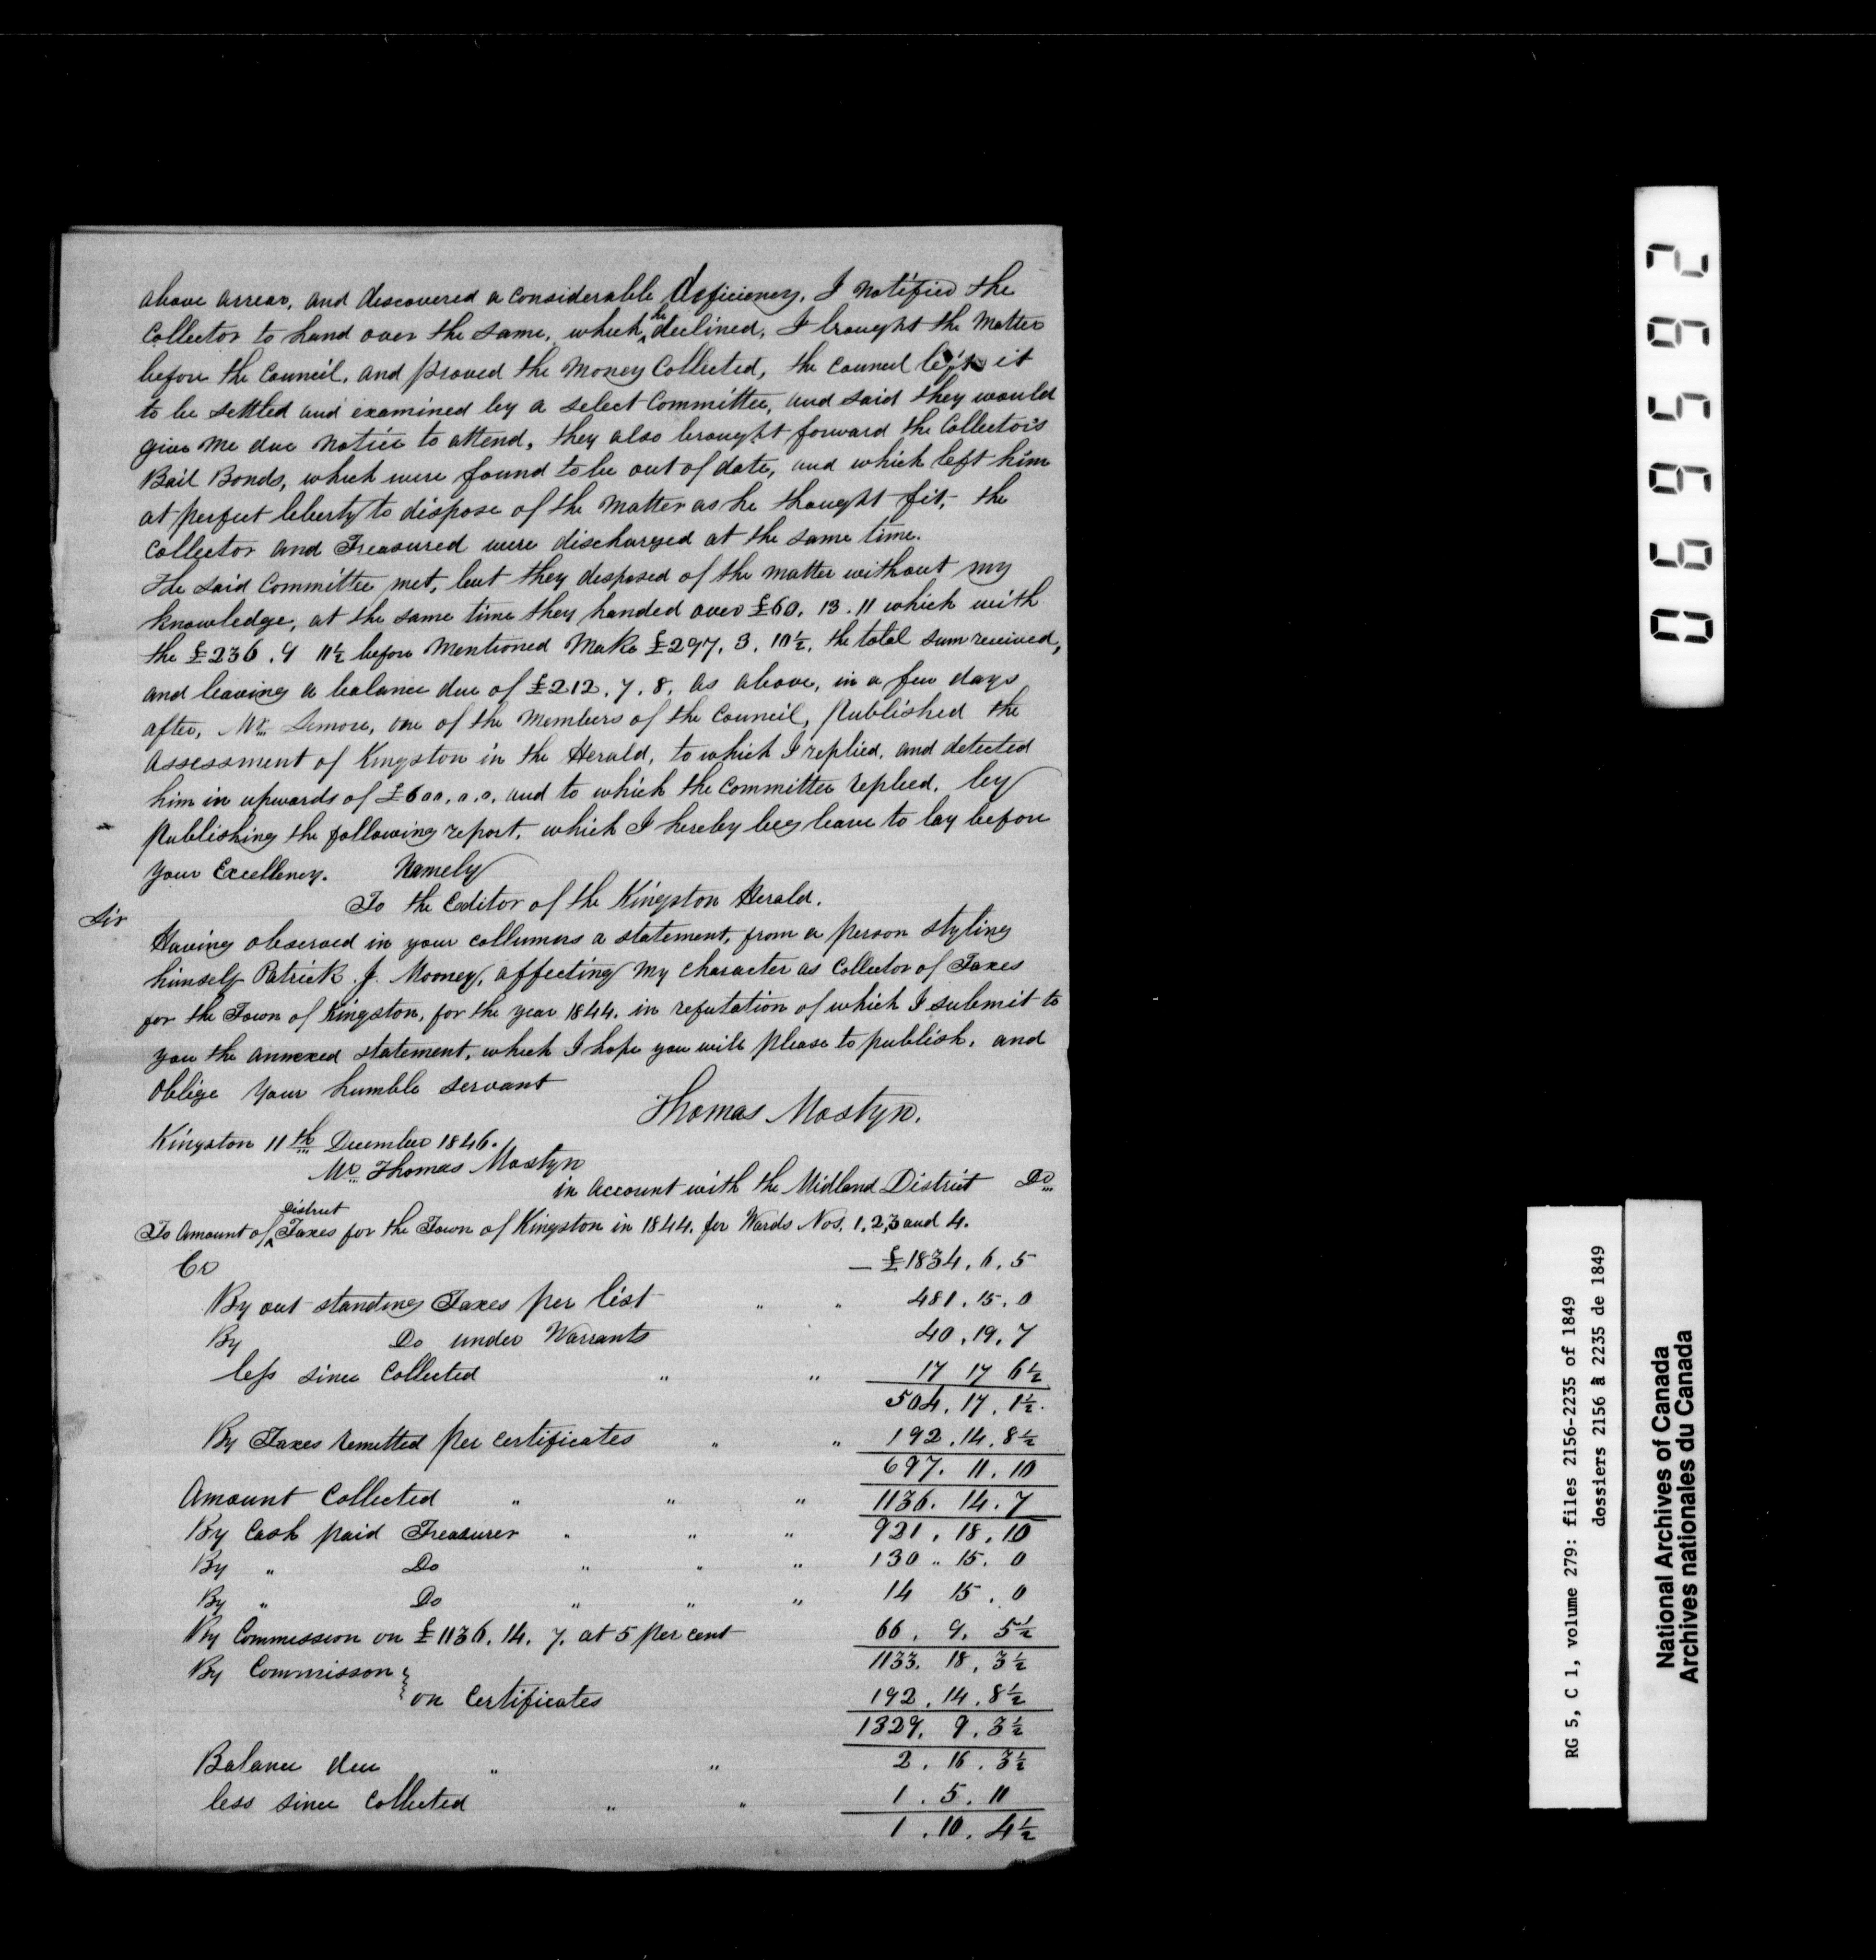 above arrear, and discovered a considerable deficiency, I notified the
Collector to hand over the same, which he declined, I brought the Matter
before the Council, and proved the Money Collected, the Council left it
to be settled and examined by a select Committee, and said they would
give me due notice to attend, they also brought forward the Collector's
Bail Bonds, which were found to be out of date, and which left him
at perfect liberty to dispose of the Matter as he thought fit, the
Collector and Treasured were discharged at the same time.
The said Committee met, but they disposed of the matter without my
knowledge, at the same time they handed over £60. 13. 11 which with
the £236. 9 11½ before Mentioned Make £297. 3. 10½, the total sum received,
and leaving a balance due of £212. 7. 8. as above, in a few days
after, Mr. one of the Members of the Council, published the
Assessment of Kingston in the Herald, to which I replied, and detected
him in upwards of £600. 0. 0. and to which the Committee replied, by
publishing the following report, which I hereby beg leave to lay before
your Excellency. Namely
To the Editor of the Kingston Herald.
Sir
Having observed in your collumns a statement, from a person styling
himself Patrick J. Mooney, affecting my character as Collector of Taxes
for the Town of Kingston, for the year 1844. in refutation of which I submit to
you the annexed statement, which I hope you will please to publish, and
Oblige Your humble servant
Thomas Mostyn.
Kingston 11th December 1846.
Mr Thomas Mostyn
in Account with the Midland District Dr
To Amount of District Taxes for the Town of Kingston in 1844. for Wards Nos. 1, 2, 3 and 4.
Cr — £1834. 6. 5
By out standing Taxes per list " " 481. 15. 0
By Do under Warrants 40. 19. 7
less since Collected " " 17 17 6½
504. 17. 1½.
By Taxes remitted per certificates " " 192. 14. 8½
697. 11. 10
Amount Collected " " " 1136. 14. 7
By Cash paid Treasurer " " " 921. 18. 10
By " Do " " " 130 " 15. 0
By " Do " " " 14 15. 0
By Commission on £1136. 14. 7. at 5 per cent 66. 9. 5½
By Commisson 1133. 18. 3½
on Certificates 192. 14. 8½
1329. 9. 3½
Balance due " " 2. 16. 3½
less since Collected " " 1. 5. 11
1. 10. 4½
069592
RG 5, C 1, volume 279: files 2156-2235 of 1849
dossiers 2156 à 2235 de 1849
National Archives of Canada
Archives nationales du Canada